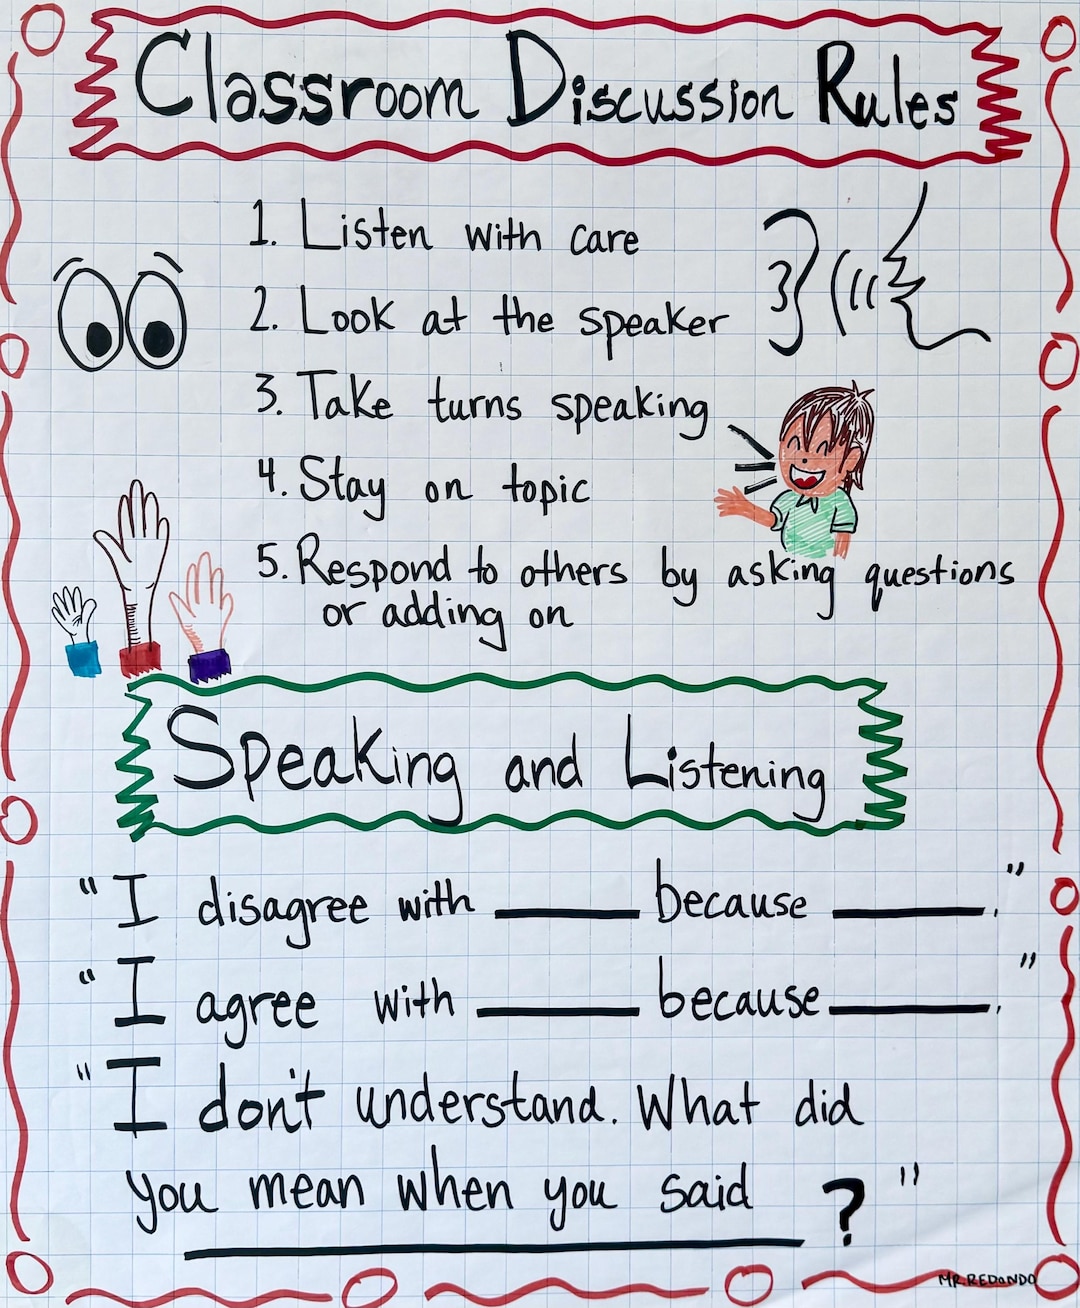 Classroom Discussion Rules
1. Listen with care
2. Look at the speaker
3. Take turns speaking
4. Stay on topic
5. Respond to others by asking questions
or adding on
Speaking and Listening
"I disagree with ______ because ______."
"I agree with ______ because ______."
"I don't understand. What did
you mean when you said
______?"
MR. REDONDO